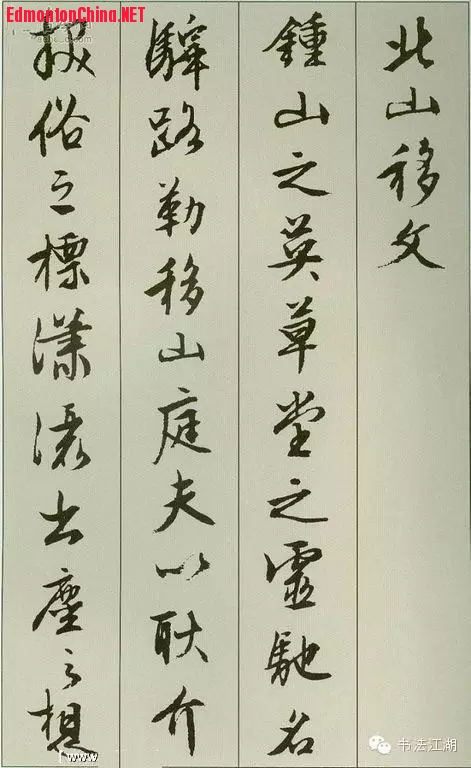 EdmontonChina.NET
北山移文
鍾山之英草堂之靈馳名
驛路勒移山庭夫以耿介
拔俗之標瀟灑出塵之想
www
书法江湖